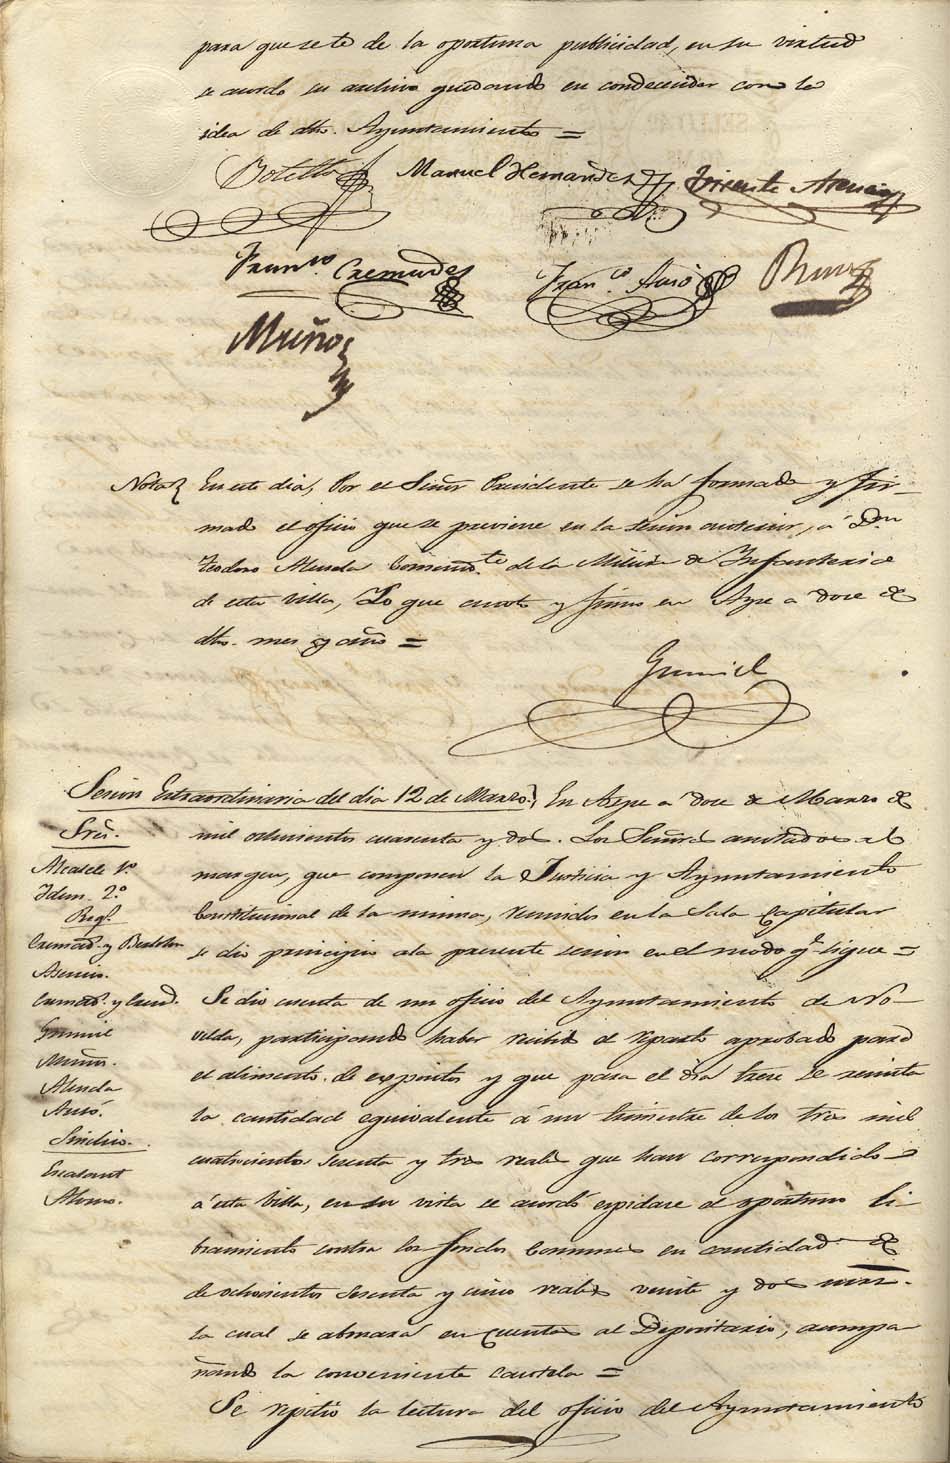 para que se le de la oportuna publicidad, en su virtud
se acordo su archivo quedando en condecender con la
idea de dho. Ayuntamiento =
Botella Manuel Hernandez Vicente Asencio
Franco. Cremades Franco. Ausó
Muñoz
Nota En este dia, por el Señor Presidente se ha formado y fir-
mado el oficio que se previene en la sesion anterior, á Dn
Teodoro Alenda Comandte. de la Milicia de Infanteria
de esta villa, Lo que anoto y firmo en Aspe a doce de
dho. mes y año =
Gumiel
Sesion Extraordinaria del dia 12 de Marzo. En Aspe a doce de Marzo de
mil ochocientos cuarenta y dos. Los Señores anotados al
margen, que componen la Justicia y Ayuntamiento
Constitucional de la misma, reunidos en la Sala Capitular
se dio principio a la presente sesion en el modo q.e sigue =
Sres.
Alcalde 1º
Idem. 2º
Reg.s
Cremads. y Botella
Asencio.
Cremads. y
Gumiel
Muños.
Alenda
Ausó.
Sindico.
Alonso.
Se dio cuenta de un oficio del Ayuntamiento de No-
velda, participando haber recibido el reparto aprobado para
el alimento de expositos y que para el dia trece se remita
la cantidad equivalente á un trimestre de los tres mil
cuatrocientos sesenta y tres reales que han correspondido
á esta Villa, en su vista se acordó expidase el oportuno li-
bramiento contra los fondos Comunes en cantidad de
de ochocientos sesenta y cinco reales veinte y dos mrs.
la cual se abonará en cuentas al Depositario, acompa-
ñando la conveniente cautela =
Se repitió la lectura del oficio del Ayuntamiento